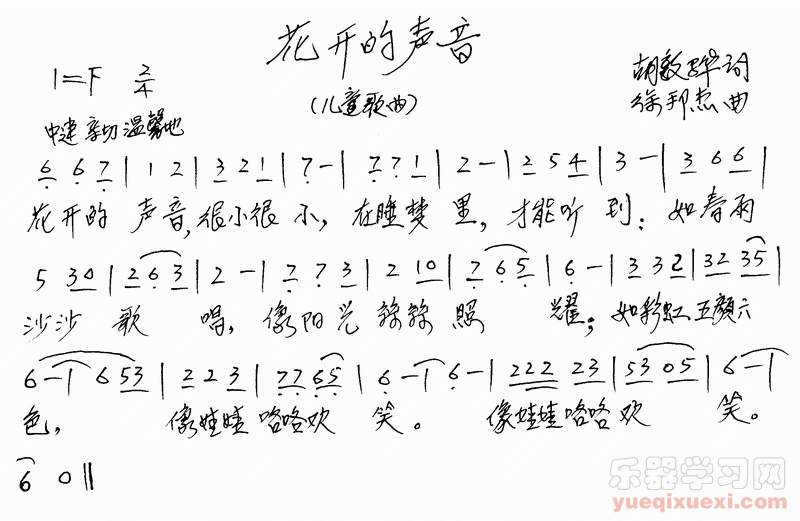 花开的声音
1=F 2/4
(儿童歌曲)
胡敦骅词
徐邦杰曲
中速 亲切 温馨地
6 6 7 | 1 2 | 3 2 1 | 7 - | 7 7 1 | 2 - | 2 5 4 | 3 - | 3 6 6 |
花开的 声音,很小很小,在睡梦里,才能听到;如春雨
5 3 0 | 2 6 3 | 2 - | 7 7 3 | 2 1 0 | 7 6 5 | 6 - | 3 3 2 | 3 2 3 5 |
沙沙 歌 唱,像阳光丝丝照 耀;如彩虹五颜六
6 - | 6 5 3 | 2 2 3 | 7 7 6 5 | 6 - | 6 - | 2 2 2 2 3 | 5 3 0 5 | 6 - |
色, 像娃娃咯咯欢 笑。 像娃娃咯咯欢 笑。
6 0 ‖
乐器学习网
yueqixuexi.com